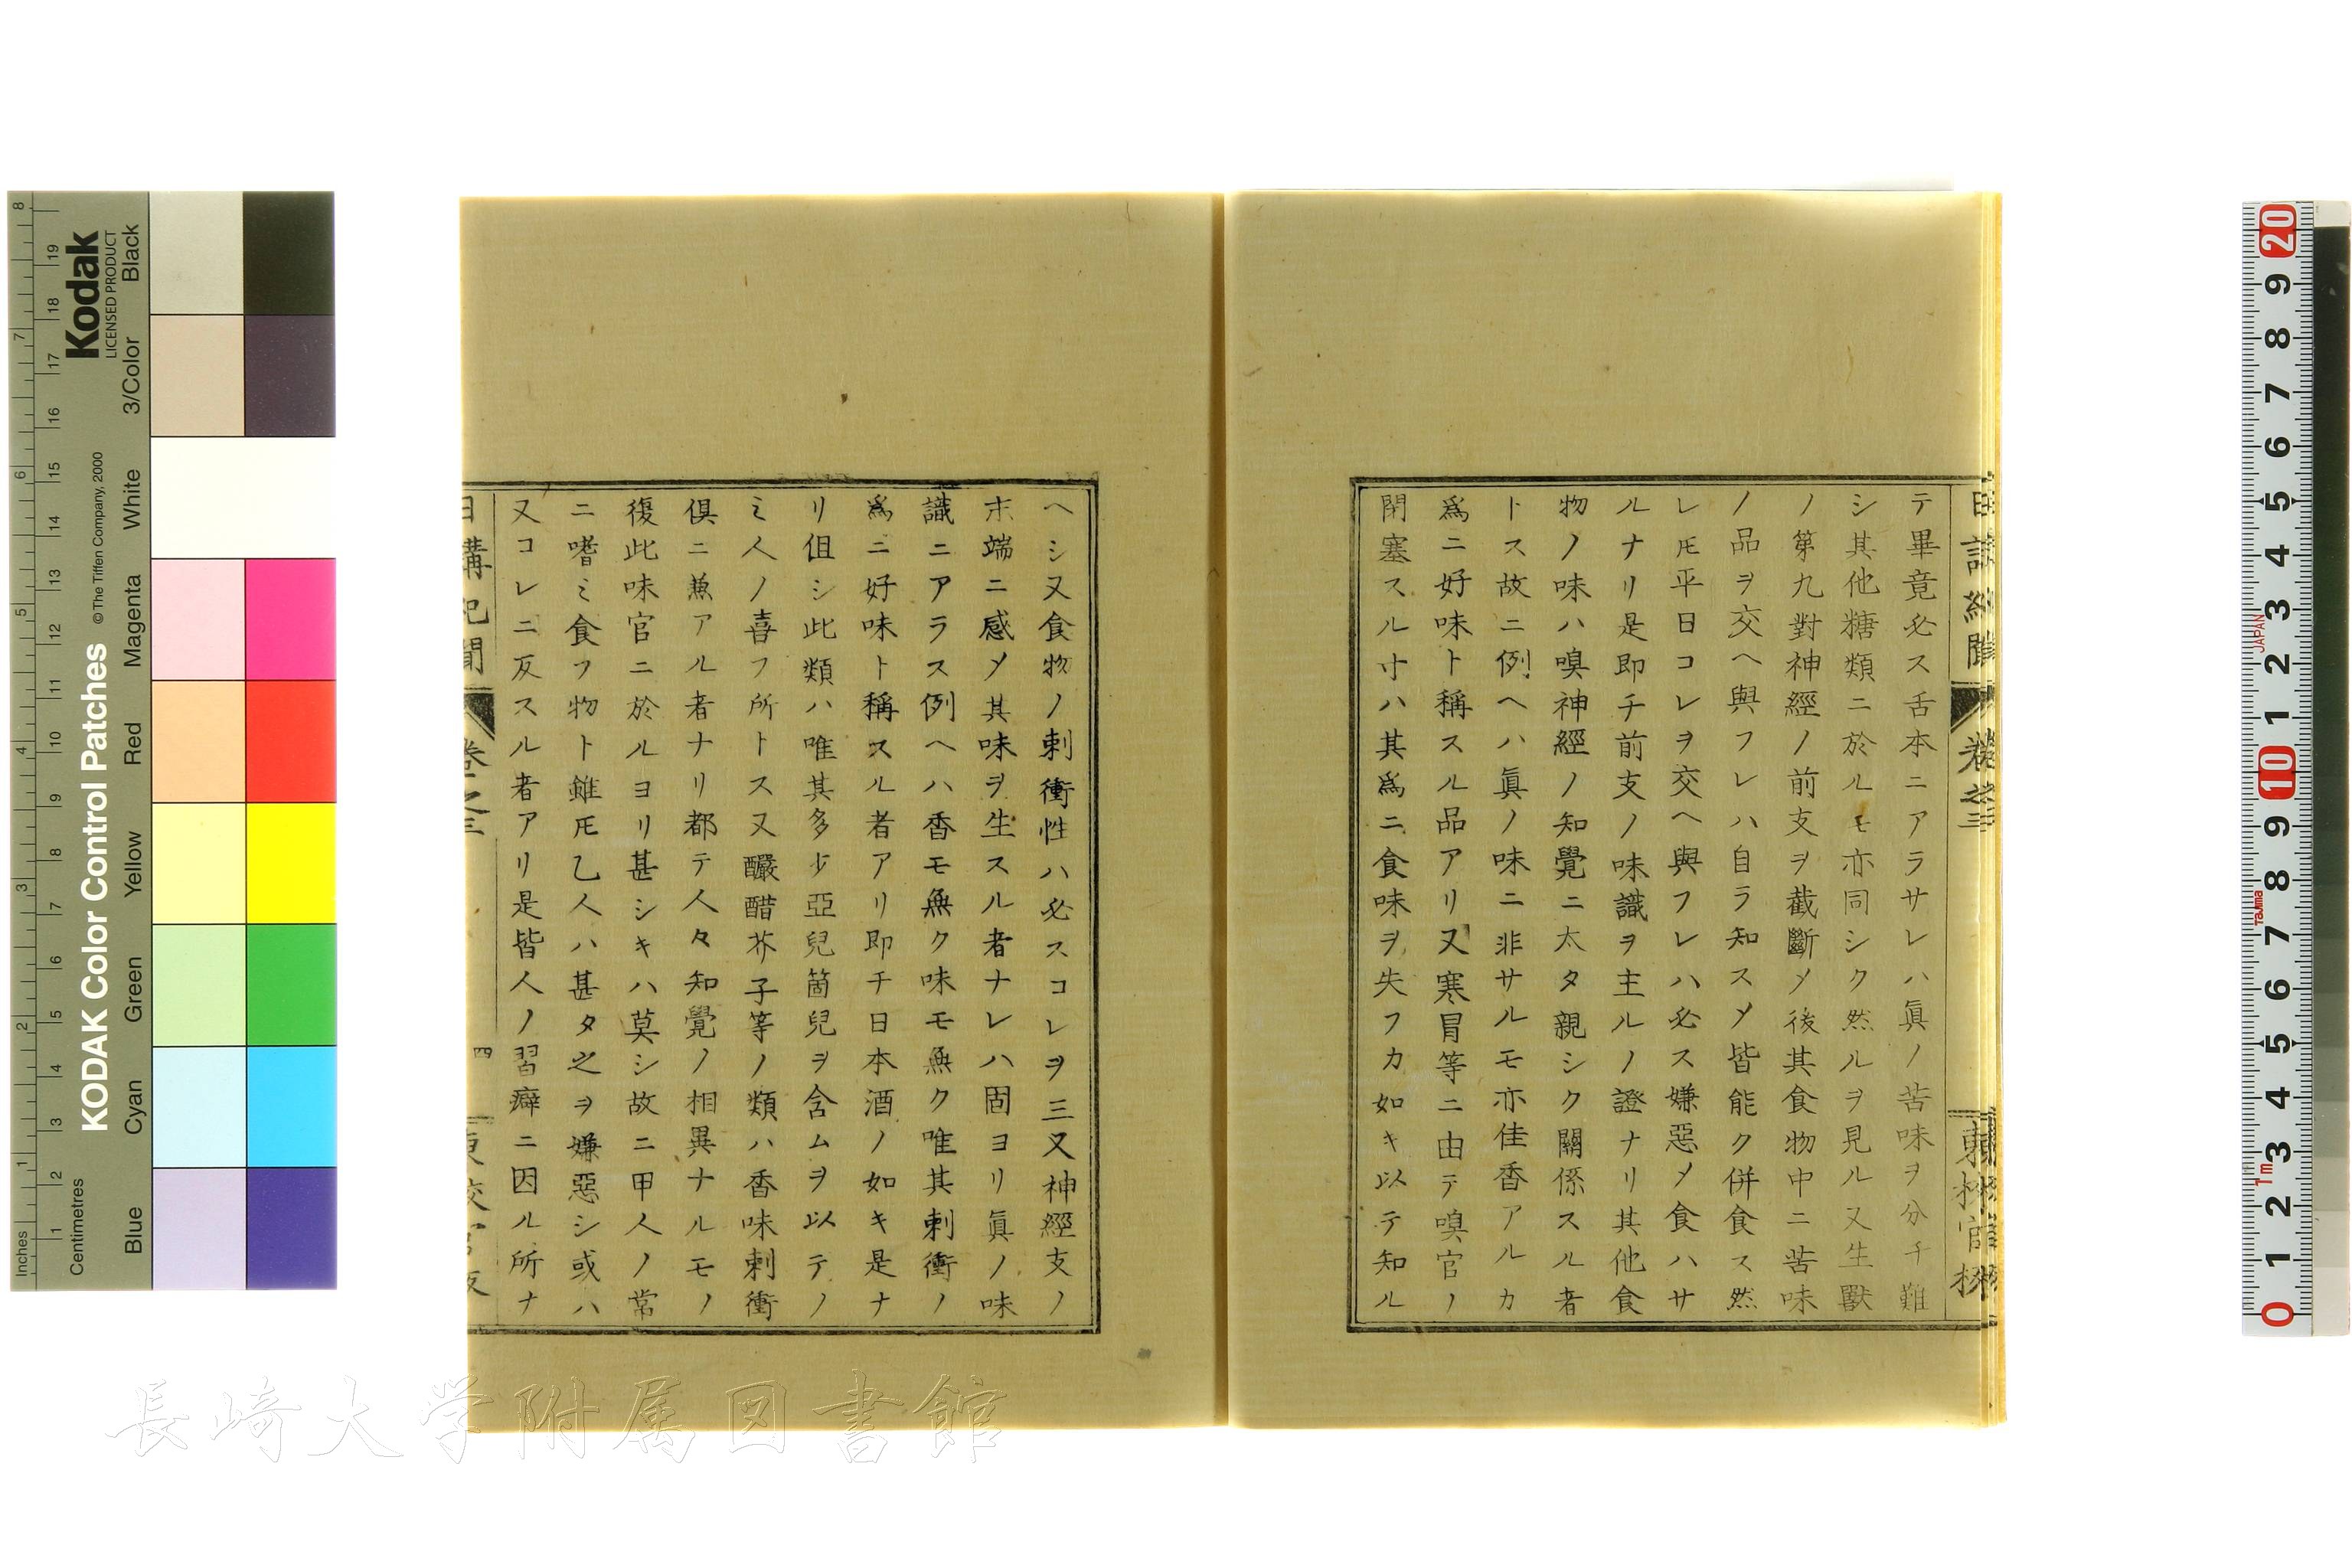 日講紀聞 卷之三
テ畢竟必ス舌本ニアラサレハ眞ノ苦味ヲ分チ難
シ其他糖類ニ於ルモ亦同シク然ルヲ見ル又生獸
ノ第九對神經ノ前支ヲ截斷〆後其食物中ニ苦味
ノ品ヲ交ヘ與フレハ自ラ知ス〆皆能ク併食ス然
レ𪜈平日コレヲ交ヘ與フレハ必ス嫌惡〆食ハサ
ルナリ是即チ前支ノ味識ヲ主ルノ證ナリ其他食
物ノ味ハ嗅神經ノ知覺ニ太タ親シク關係スル者
トス故ニ例ヘハ眞ノ味ニ非サルモ亦佳香アルカ
爲ニ好味ト稱スル品アリ又寒冒等ニ由テ嗅官ノ
閉塞スル寸ハ其爲ニ食味ヲ失フカ如キ以テ知ル
ヘシ又食物ノ刺衝性ハ必スコレヲ三叉神經支ノ
末端ニ感〆其味ヲ生スル者ナレハ固ヨリ眞ノ味
識ニアラス例ヘハ香モ無ク味モ無ク唯其刺衝ノ
爲ニ好味ト稱スル者アリ即チ日本酒ノ如キ是ナ
リ伹シ此類ハ唯其多少亞兒箇兒ヲ含ムヲ以テノ
ミ人ノ喜フ所トス又釅醋芥子等ノ類ハ香味刺衝
倶ニ兼アル者ナリ都テ人々知覺ノ相異ナルモノ
復此味官ニ於ルヨリ甚シキハ莫シ故ニ甲人ノ常
ニ嗜ミ食フ物ト雖𪜈乙人ハ甚タ之ヲ嫌惡シ或ハ
又コレニ反スル者アリ是皆人ノ習癖ニ因ル所ナ
日講紀聞 卷之三 四
長崎大学附属図書館
KODAK Color Control Patches
© The Tiffen Company, 2000
Kodak
LICENSED PRODUCT
Inches
Centimetres
Blue Cyan Green Yellow Red Magenta White 3/Color Black
JAPAN
Tajima
1m